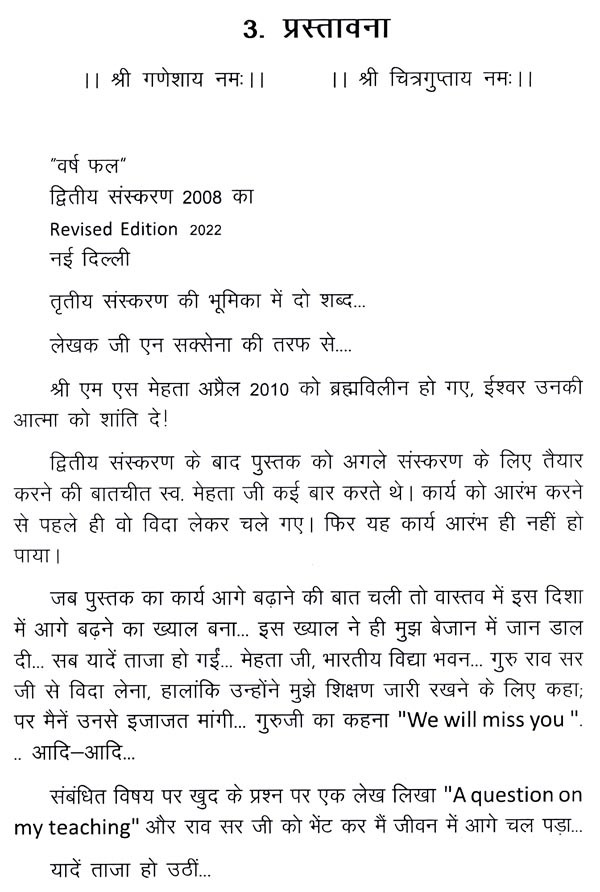 3. प्रस्तावना
।। श्री गणेशाय नमः।। ।। श्री चित्रगुप्ताय नमः।।
"वर्ष फल"
द्वितीय संस्करण 2008 का
Revised Edition 2022
नई दिल्ली
तृतीय संस्करण की भूमिका में दो शब्द...
लेखक जी एन सक्सेना की तरफ से....
श्री एम एस मेहता अप्रैल 2010 को ब्रह्मविलीन हो गए, ईश्वर उनकी
आत्मा को शांति दे!
द्वितीय संस्करण के बाद पुस्तक को अगले संस्करण के लिए तैयार
करने की बातचीत स्व. मेहता जी कई बार करते थे। कार्य को आरंभ करने
से पहले ही वो विदा लेकर चले गए। फिर यह कार्य आरंभ ही नहीं हो
पाया।
जब पुस्तक का कार्य आगे बढ़ाने की बात चली तो वास्तव में इस दिशा
में आगे बढ़ने का ख्याल बना... इस ख्याल ने ही मुझ बेजान में जान डाल
दी... सब यादें ताजा हो गईं... मेहता जी, भारतीय विद्या भवन... गुरु राव सर
जी से विदा लेना, हालांकि उन्होंने मुझे शिक्षण जारी रखने के लिए कहा;
पर मैनें उनसे इजाजत मांगी... गुरुजी का कहना "We will miss you ".
.. आदि–आदि...
संबंधित विषय पर खुद के प्रश्न पर एक लेख लिखा "A question on
my teaching" और राव सर जी को भेंट कर मैं जीवन में आगे चल पड़ा...
यादें ताजा हो उठीं...